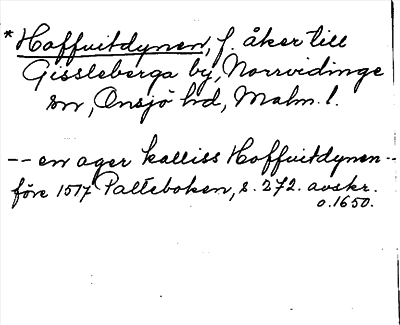 *Hoffvitdynen, f. åker till
Gissleberga by, Norrvidinge
sn, Onsjö hd, Malm. l.
-- en ager kalliss Hoffvitdynen --
före 1517 Palteboken, s. 272. avskr.
o. 1650.